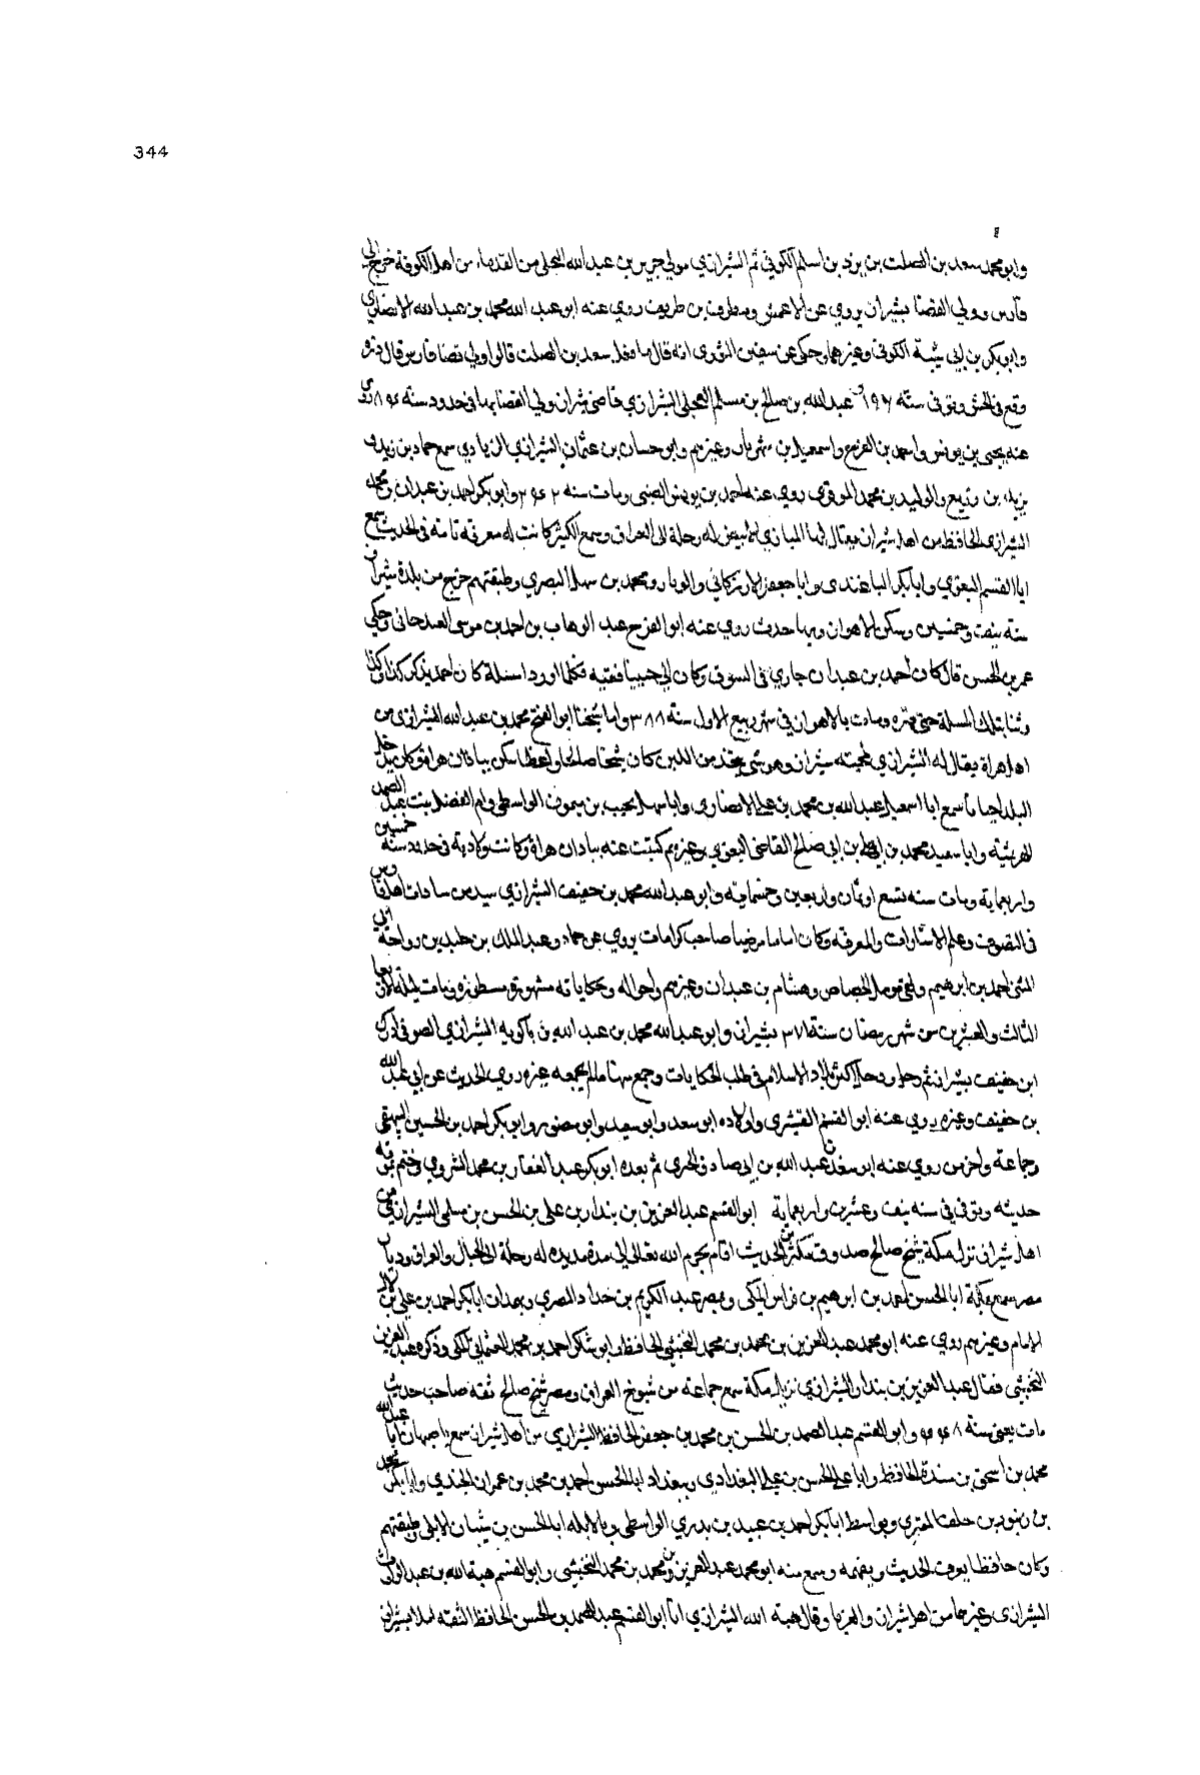 344
وابو محمد سعد بن الصلت بن برد بن اسلم الكوفي ثم الشيرازي مولي جرير بن عبد الله البجلي من القدماء من اهل الكوفة خرج الي
فارس وولي القضا بشيراز يروي عن الاعمش ومطرف بن طريف روي عنه ابو عبد الله محمد بن عبد الله الانصاري
وابو بكر بن ابي شيبة الكوفي وغيرهما وحكي عن سفين الثوري انه قال ما فعل سعد بن الصلت قالوا ولي قضا فارس قال دره
وقع في الحش وتوفي سنة ١٩٦ عبد الله بن صالح بن مسلم العجلي الشيرازي قاضي شيراز ولي القضا بها في حدود سنة
عنه يحيى بن يونس واحمد بن واسمعيل بن شهريار وغيرهم وابو حسان بن عثمان الشيرازي الزيادي سمع حماد بن زيد
يزيد بن زريع والوليد بن محمد الموقري روي عنه احمد بن يونس الضبي ومات سنة وابو بكر احمد بن عبدان بن محمد
الشيرازي الحافظ من اهل شيراز يقال له الباز الابيض له رحلة الى العراق وجمع الكثير كانت له معرفة تامة في الحديث سمع
ابا القسم البغوي وابا بكر الباغندي وابا جعفر الارزكاني ومحمد بن سهل البصري وطبقتهم خرج من بلدة شيراز
سنة نيف وخمسين وسكن الاهواز وبها حدث روي عنه ابو الفرج عبد الوهاب بن احمد بن موسى وحكي
عمر بن الحسن قال كان احمد بن عبدان جاري في السوق وكان الي جنبنا فقيه فكلما اورد اسئلة كان احمد يذكر كذا وكذا
تلك المسلة حتى ومات بالاهواز في شهر ربيع الاول سنة ٣٨٨ واما شيخنا ابو الفتح محمد بن عبد الله الشيرازي من
اهل هراة يقال له الشيرازي كان شيخا صالحا واعظا سكن هراة وكان
البلد احيانا سمع ابا اسمعيل عبد الله بن محمد بن علي الانصاري وابا سهل نجيب بن ميمون الواسطي وام الفضل بنت عبد الصمد
الهرثمية وابا سعيد محمد بن ابي صالح القاضي البغوي وغيرهم كتبت عنه هراة وكانت ولادته في حدود سنة خمسين
واربعماية ومات سنة تسع او ثمان واربعين وخمسماية وابو عبد الله محمد بن خفيف الشيرازي سيد من سادات اهل فارس
في التصوف وعلم الاشارات والمعرفة وكان اماما مرضيا صاحب كرامات يروي عن حماد وعبد الملك بن
احمد بن ابرهيم ولقي مومل الجصاص وهشام بن عبدان وغيرهم واحواله وحكاياته مشهورة مسطورة ومات ليلة
الثالث والعشرين من شهر رمضان سنة ٣٧١ بشيراز وابو عبد الله محمد بن عبد الله بن باكويه الشيرازي الصوفي ادرك
ابن خفيف بشيراز ثم رحل ودخل اكثر بلاد الاسلام في طلب الحكايات وجمع منها ما لم يجمعه غيره روي الحديث عن ابي عبد الله
بن خفيف وغيره روي عنه ابو القسم القشيري واولاده ابو سعد وابو سعيد وابو منصور وابو بكر احمد بن الحسين البيهقي
وجماعة واخر من روي عنه ابو سعد عبد الله بن ابي صادق الحيري ثم بعده ابو بكر عبد الغفار بن محمد الشروي وختم بموته
حديثه وتوفي في سنة نيف وعشرين واربعماية ابو القسم عبد العزيز بن بندار بن علي بن الحسن بن الشيرازي من
اهل شيراز نزل مكة شيخ صالح صدوق مكثر من الحديث اقام بحرم الله تعالى الى مدة مديدة له رحلة الى الجبال والعراق وديار
مصر سمع بمكة ابا الحسن احمد بن ابرهيم بن فراس المكي وبمصر عبد الكريم بن المصري وبهمدان ابا بكر احمد بن علي بن لال
الامام وغيرهم روي عنه ابو محمد عبد العزيز بن محمد بن محمد النخشبي الحافظ وابو شاكر احمد بن محمد العثماني المكي وذكره عبد العزيز
النخشبي فقال عبد العزيز بن بندار الشيرازي نزيل مكة سمع جماعة من شيوخ العراق ومصر شيخ صالح ثقة صاحب حديث
مات يعني سنة وابو القسم عبد الصمد بن الحسن بن محمد بن جعفر الحافظ الشيرازي من اهل شيراز سمع باصبهان ابا عبد الله
محمد بن اسحق بن مندة الحافظ وابا علي الحسن بن علي البغدادي وببغداد ابا الحسن احمد بن محمد بن عمران الجندي وابا بكر محمد
بن خلف المقري وبواسط ابا بكر احمد بن عبيد بن بيري الواسطي وبالابلة ابا الحسن بن شبان الابلي وطبقتهم
وكان حافظا يعرف الحديث ويفهمه وسمع منه ابو محمد عبد العزيز بن محمد بن محمد النخشبي وابو القسم هبة الله بن عبد الوارث
الشيرازي وغيرهما من اهل شيراز والغربا وقال هبة الله الشيرازي انا ابو القسم عبد الصمد بن الحسن الحافظ الثقة املا بشيراز